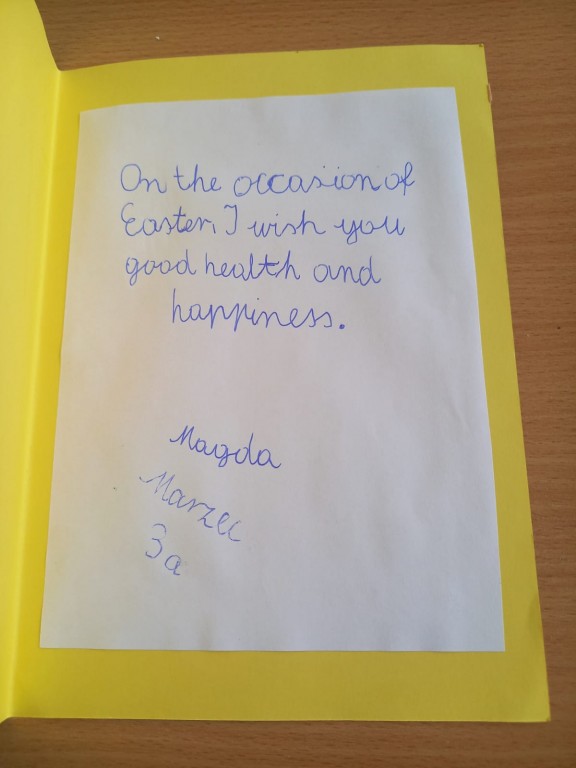 On the occasion of
Easter, I wish you
good health and
happiness.
Magda
Marzec
3a